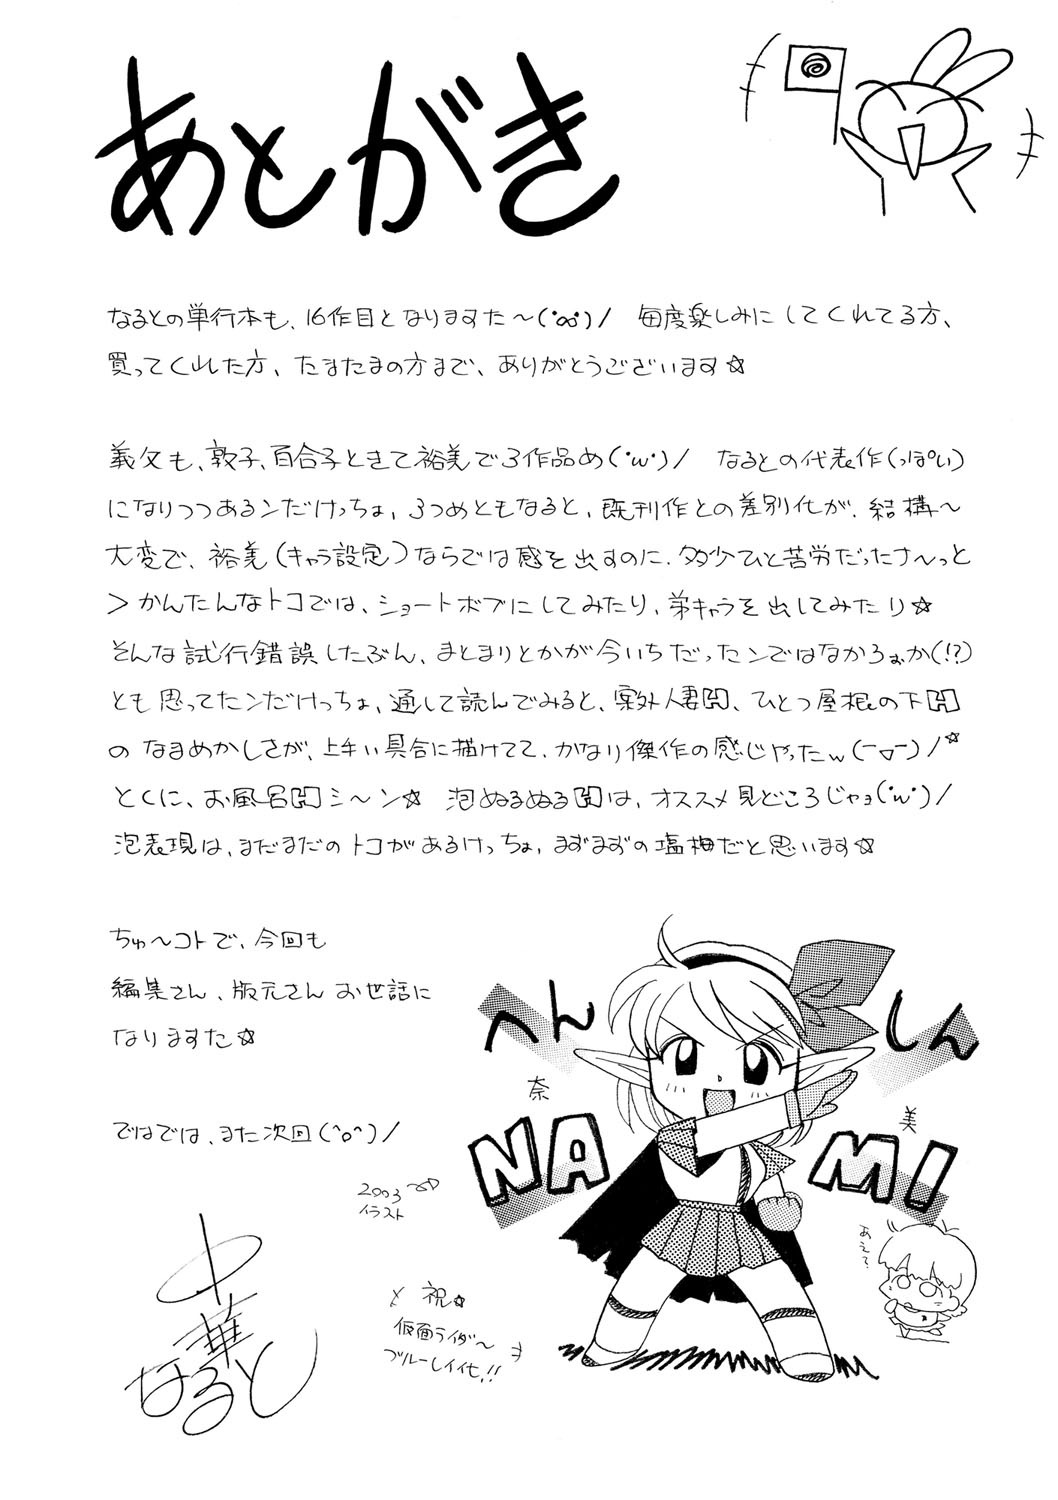 あとがき
なるとの単行本も、16作目となりますた～(°∞°)/　毎度楽しみにしてくれてる方、
買ってくれた方、たまたまの方まで、ありがとうございます☆
義父も、敦子、百合子ときて裕美で3作品め(･ω･)/　なるとの代表作(っぽい)
になりつつあるンだけっちょ、3つめともなると、既刊作との差別化が、結構～
大変で、裕美(キャラ設定)ならでは感を出すのに、多少ひと苦労だったナ～っと
＞かんたんなトコでは、ショートボブにしてみたり、弟キャラを出してみたり☆
そんな試行錯誤したぶん、まとまりとかが今いちだったンではなかろぉか(!?)
とも思ってたンだけっちょ、通して読んでみると、案外人妻H、ひとつ屋根の下H
のなまめかしさが、上手い具合に描けてて、かなり傑作の感じやったw(￣▽￣)/☆
とくに、お風呂Hシ～ン☆　泡ぬるぬるHは、オススメ見どころじゃョ(･ω･)/
泡表現は、まだまだのトコがあるけっちょ、まずまずの塩梅だと思います☆
ちゅ～コトで、今回も
編集さん、版元さんお世話に
なりますた☆
ではでは、また次回(^o^)/
へん
しん
奈
美
NA
MI
2003
イラスト
あえて?
祝☆
仮面ライダ～
ブルーレイ化!!
中華
なると